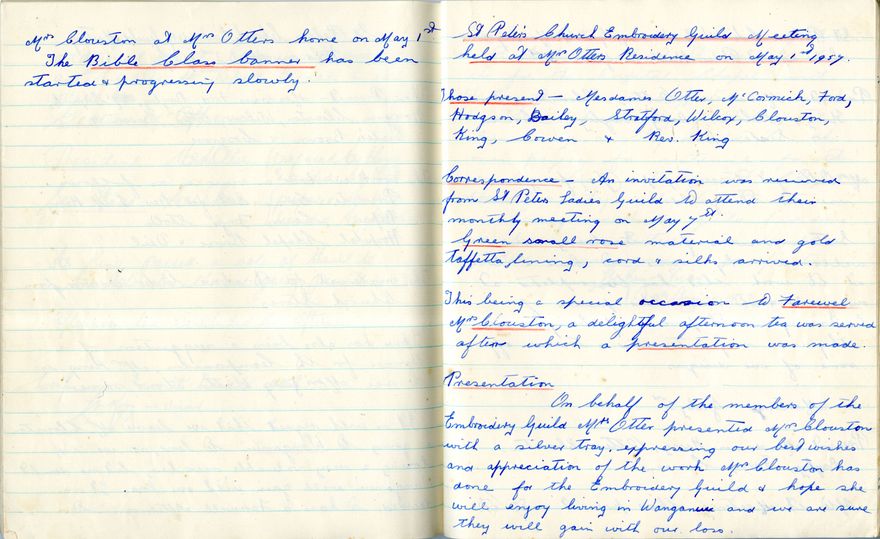 Mrs Clouston at Mrs Otters home on May 1st
The Bible Class banner has been
started & progressing slowly.
St Peters Church Embroidery Guild Meeting
held at Mrs Otters Residence on May 1st 1957.
Those present - Mesdames Otter, McCormick, Ford,
Hodgson, Bailey, Stratford, Wilcox, Clouston,
King, Cowen & Rev. King
Correspondence - An invitation was recieved
from St Peters Ladies Guild to attend their
monthly meeting on May 7st.
Green small rose material and gold
taffetta lining, cord & silks arrived.
This being a special occasion to Farewel
Mrs Clouston, a delightful afternoon tea was served
after which a presentation was made.
Presentation
On behalf of the members of the
Embroidery Guild Mrs Otter presented Mrs Clouston
with a silver tray. expressing our best wishes
and appreciation of the work Mrs Clouston has
done for the Embroidery Guild & hope she
will enjoy living in Wanganui and we are sure
they will gain with our loss.